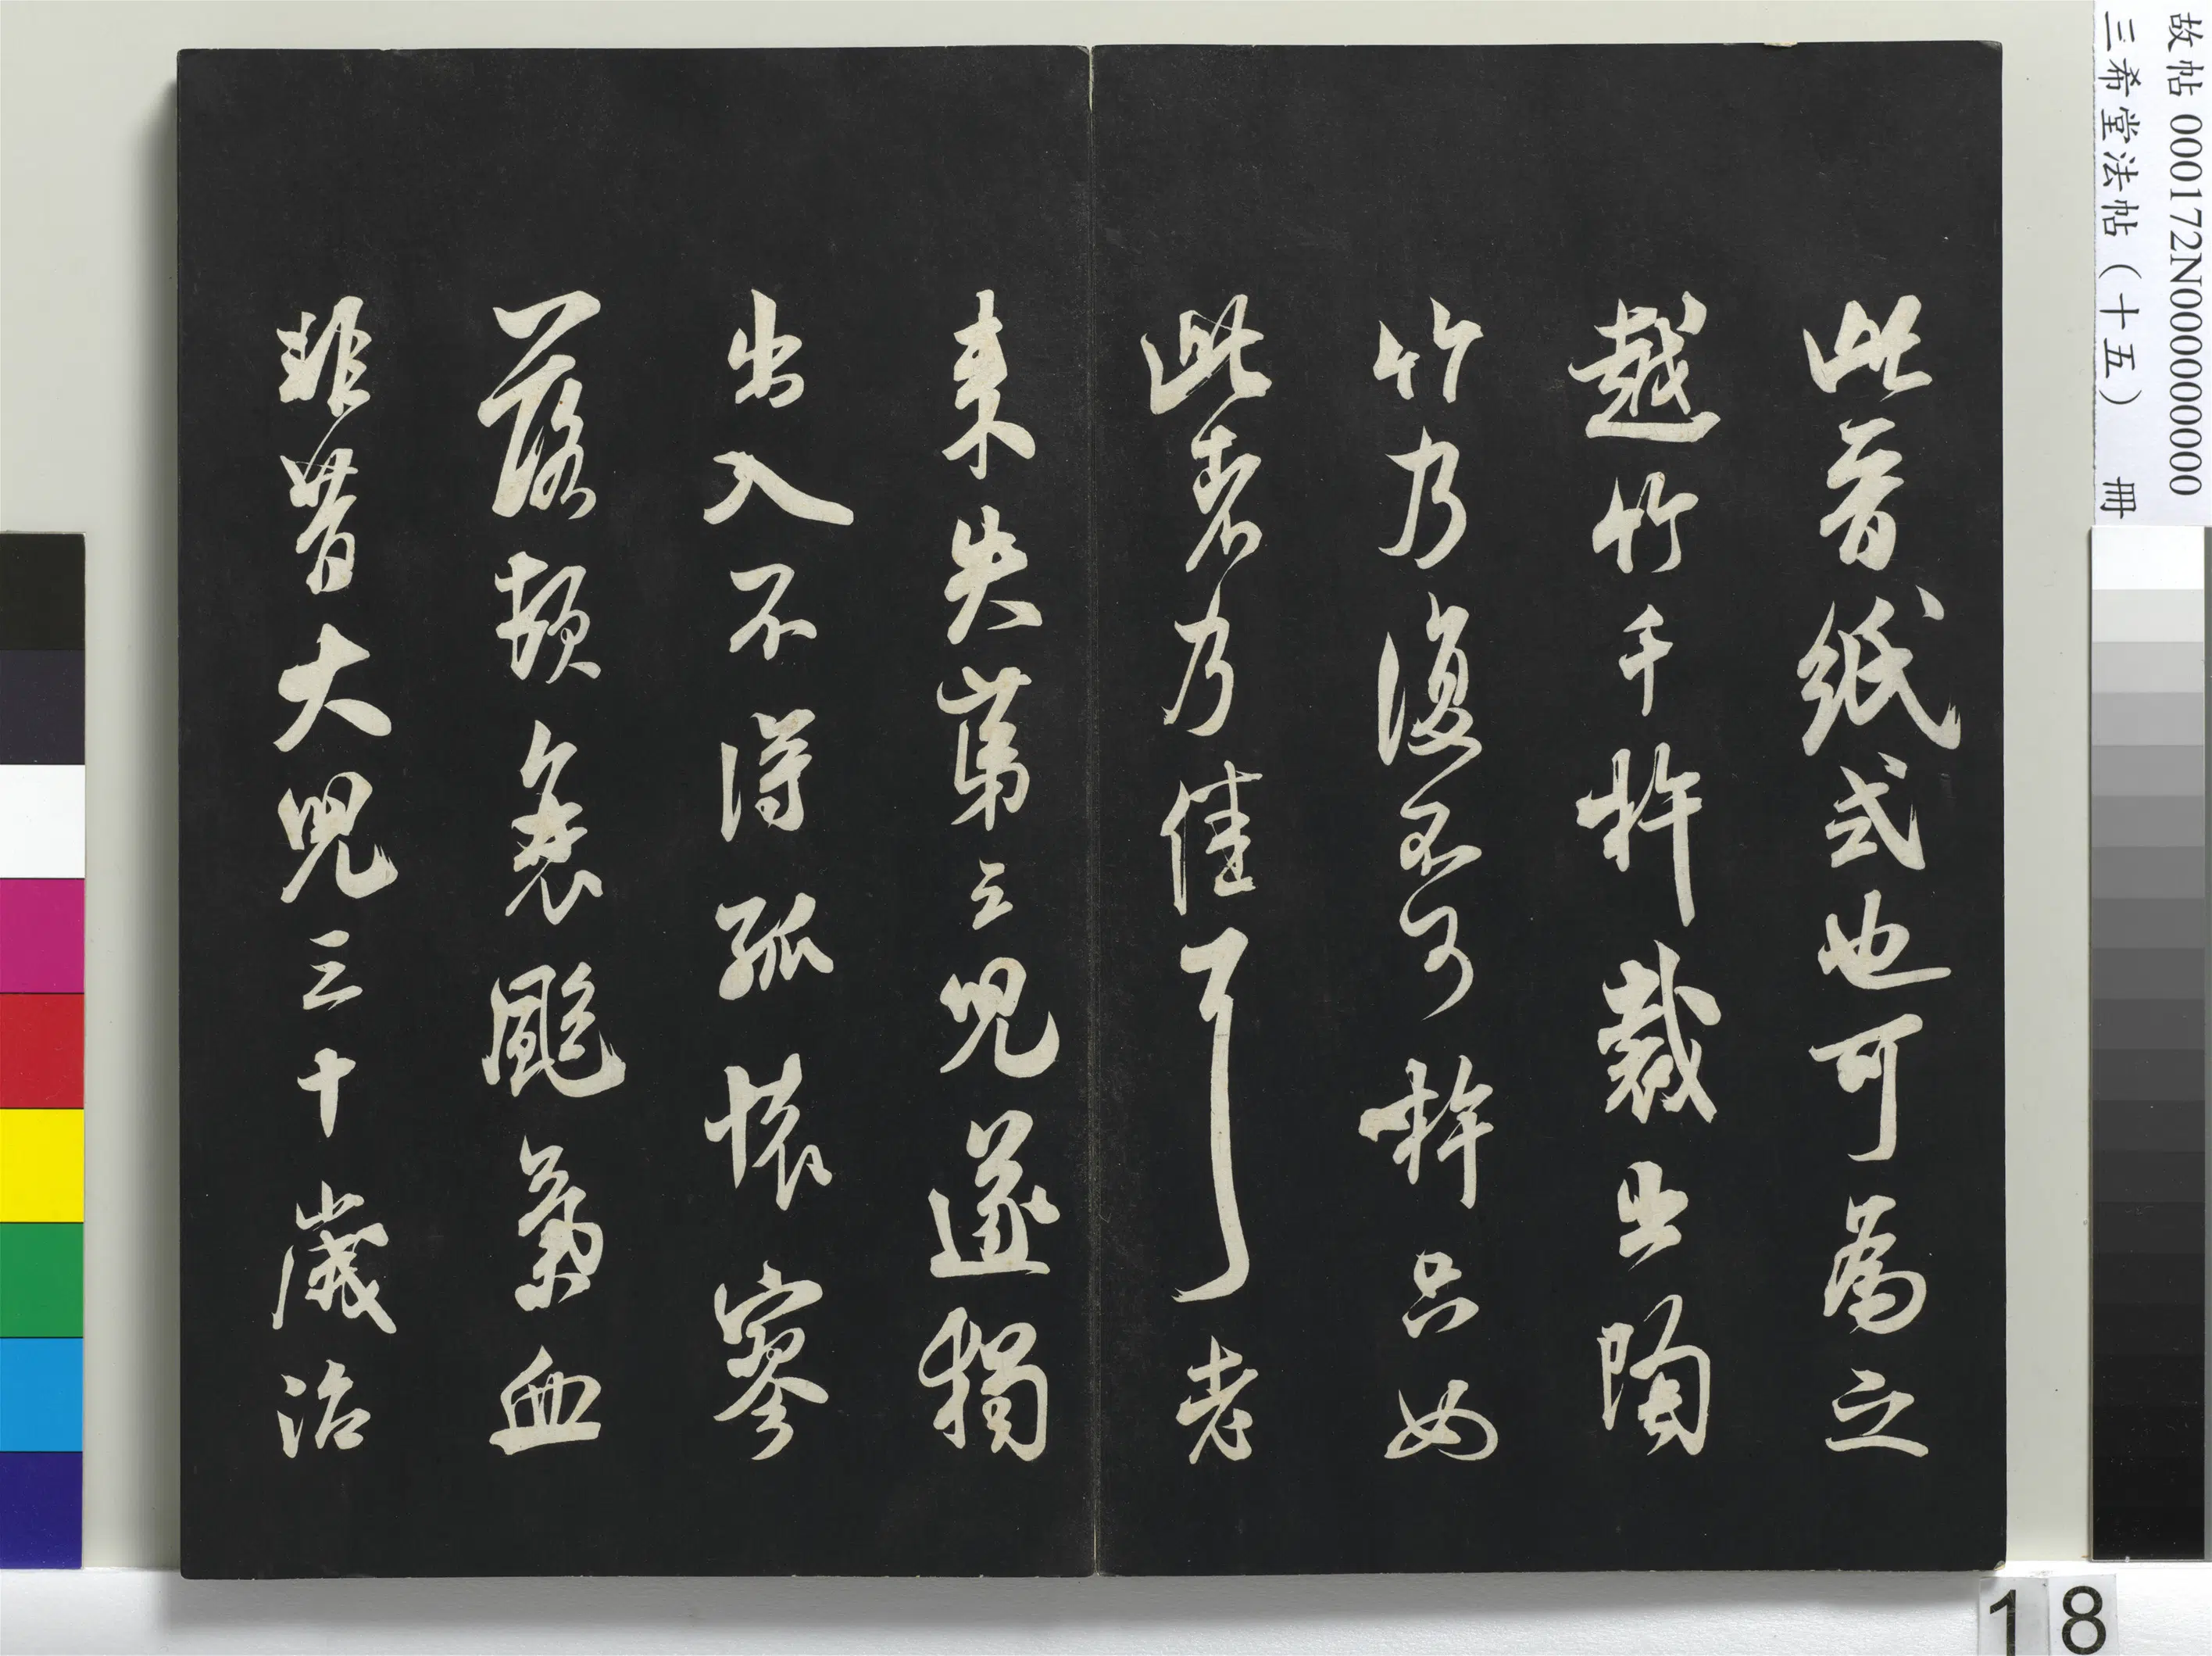 此晉紙式也可為之
越竹千杵裁出陶
竹乃復不可杵只如
此者乃佳耳老
来失第三兒遂獨
出入不得孤懷寥
落頓衰颶氣血
非昔大兒三十歲治
故帖 000172N000000000
三希堂法帖(十五) 冊
18